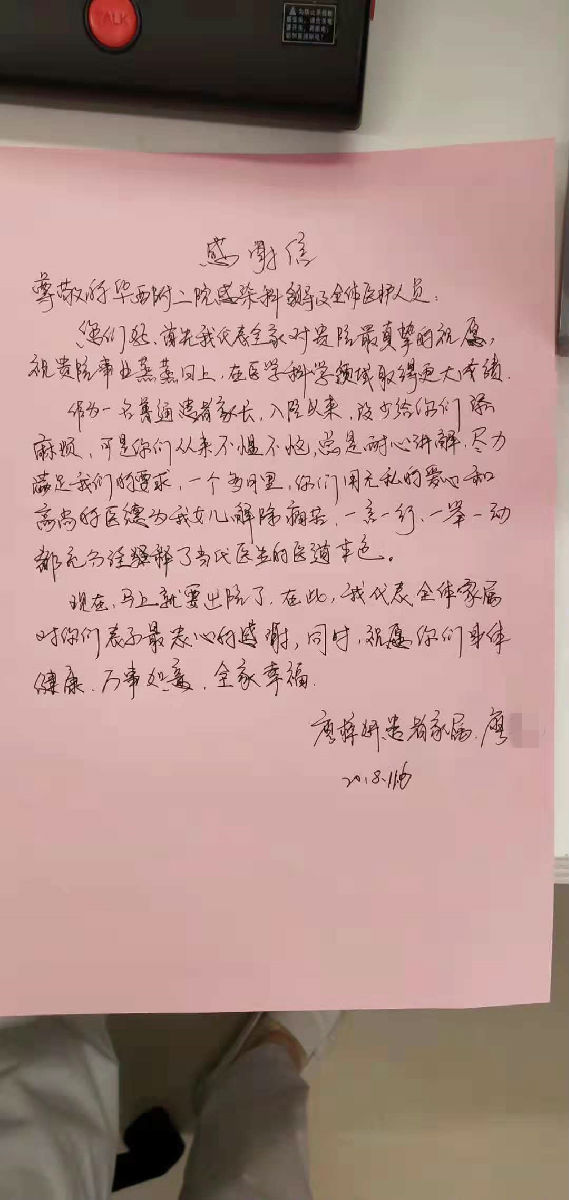 TALK
感谢信
尊敬的华西附二院感染科领导及全体医护人员:
您们好,首先我代表全家对贵院最真挚的祝愿,
祝贵院事业蒸蒸日上,在医学科学领域取得更大成绩.
作为一名普通患者家长,入院以来,没少给你们添
麻烦,可是你们从来不愠不恼,总是耐心讲解,尽力
满足我们的要求,一个多月里,你们用无私的爱心和
高尚的医德为我女儿解除病苦,一言一行,一举一动
都充分诠释了当代医生的医道本色。
现在,马上就要出院了,在此,我代表全体家属
对你们表示最衷心的感谢,同时,祝愿你们身体
健康.万事如意,全家幸福.
廖梓妍患者家属.廖